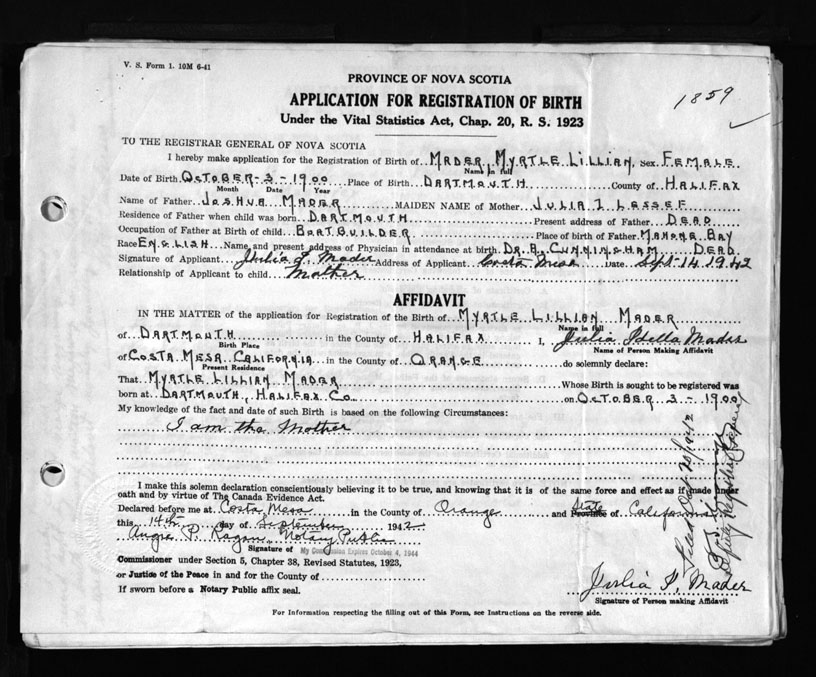 V. S. Form 1. 10M 6-41
PROVINCE OF NOVA SCOTIA
1859
APPLICATION FOR REGISTRATION OF BIRTH
Under the Vital Statistics Act, Chap. 20, R. S. 1923
TO THE REGISTRAR GENERAL OF NOVA SCOTIA
I hereby make application for the Registration of Birth of MADER, MYRTLE LILLIAN, Sex FEMALE
Name in full
Date of Birth OCTOBER-3-1900 Place of Birth DARTMOUTH County of HALIFAX
Month Date Year
Name of Father JOSHUA MADER MAIDEN NAME of Mother JULIA I LESSEF
Residence of Father when child was born DARTMOUTH Present address of Father DEAD
Occupation of Father at Birth of child BOATBUILDER Place of birth of Father MAHONE BAY
Race ENGLISH Name and present address of Physician in attendance at birth DR. A. CUNNINGHAM DEAD
Signature of Applicant Julia I. Mader Address of Applicant Costa Mesa Date Sept-14 1942
Relationship of Applicant to child Mother
AFFIDAVIT
IN THE MATTER of the application for Registration of the Birth of MYRTLE LILLIAN MADER
Name in full
of DARTMOUTH in the County of HALIFAX I, Julia Idella Mader
Birth Place Name of Person Making Affidavit
of COSTA MESA CALIFORNIA in the County of ORANGE do solemnly declare:
Present Residence
That MYRTLE LILLIAN MADER Whose Birth is sought to be registered was
born at DARTMOUTH, HALIFAX CO on OCTOBER 3-1900
My knowledge of the fact and date of such Birth is based on the following Circumstances:
I am the Mother
I make this solemn declaration conscientiously believing it to be true, and knowing that it is of the same force and effect as if made under
oath and by virtue of The Canada Evidence Act.
Declared before me at Costa Mesa in the County of Orange and Province State of California
this 14th day of September 1942
Angie P. Ragan, Notary Public
Signature of My Commission Expires October 4, 1944
Commissioner under Section 5, Chapter 38, Revised Statutes, 1923,
or Justice of the Peace in and for the County of
If sworn before a Notary Public affix seal.
Julia I. Mader
Signature of Person making Affidavit
For Information respecting the filling out of this Form, see Instructions on the reverse side.